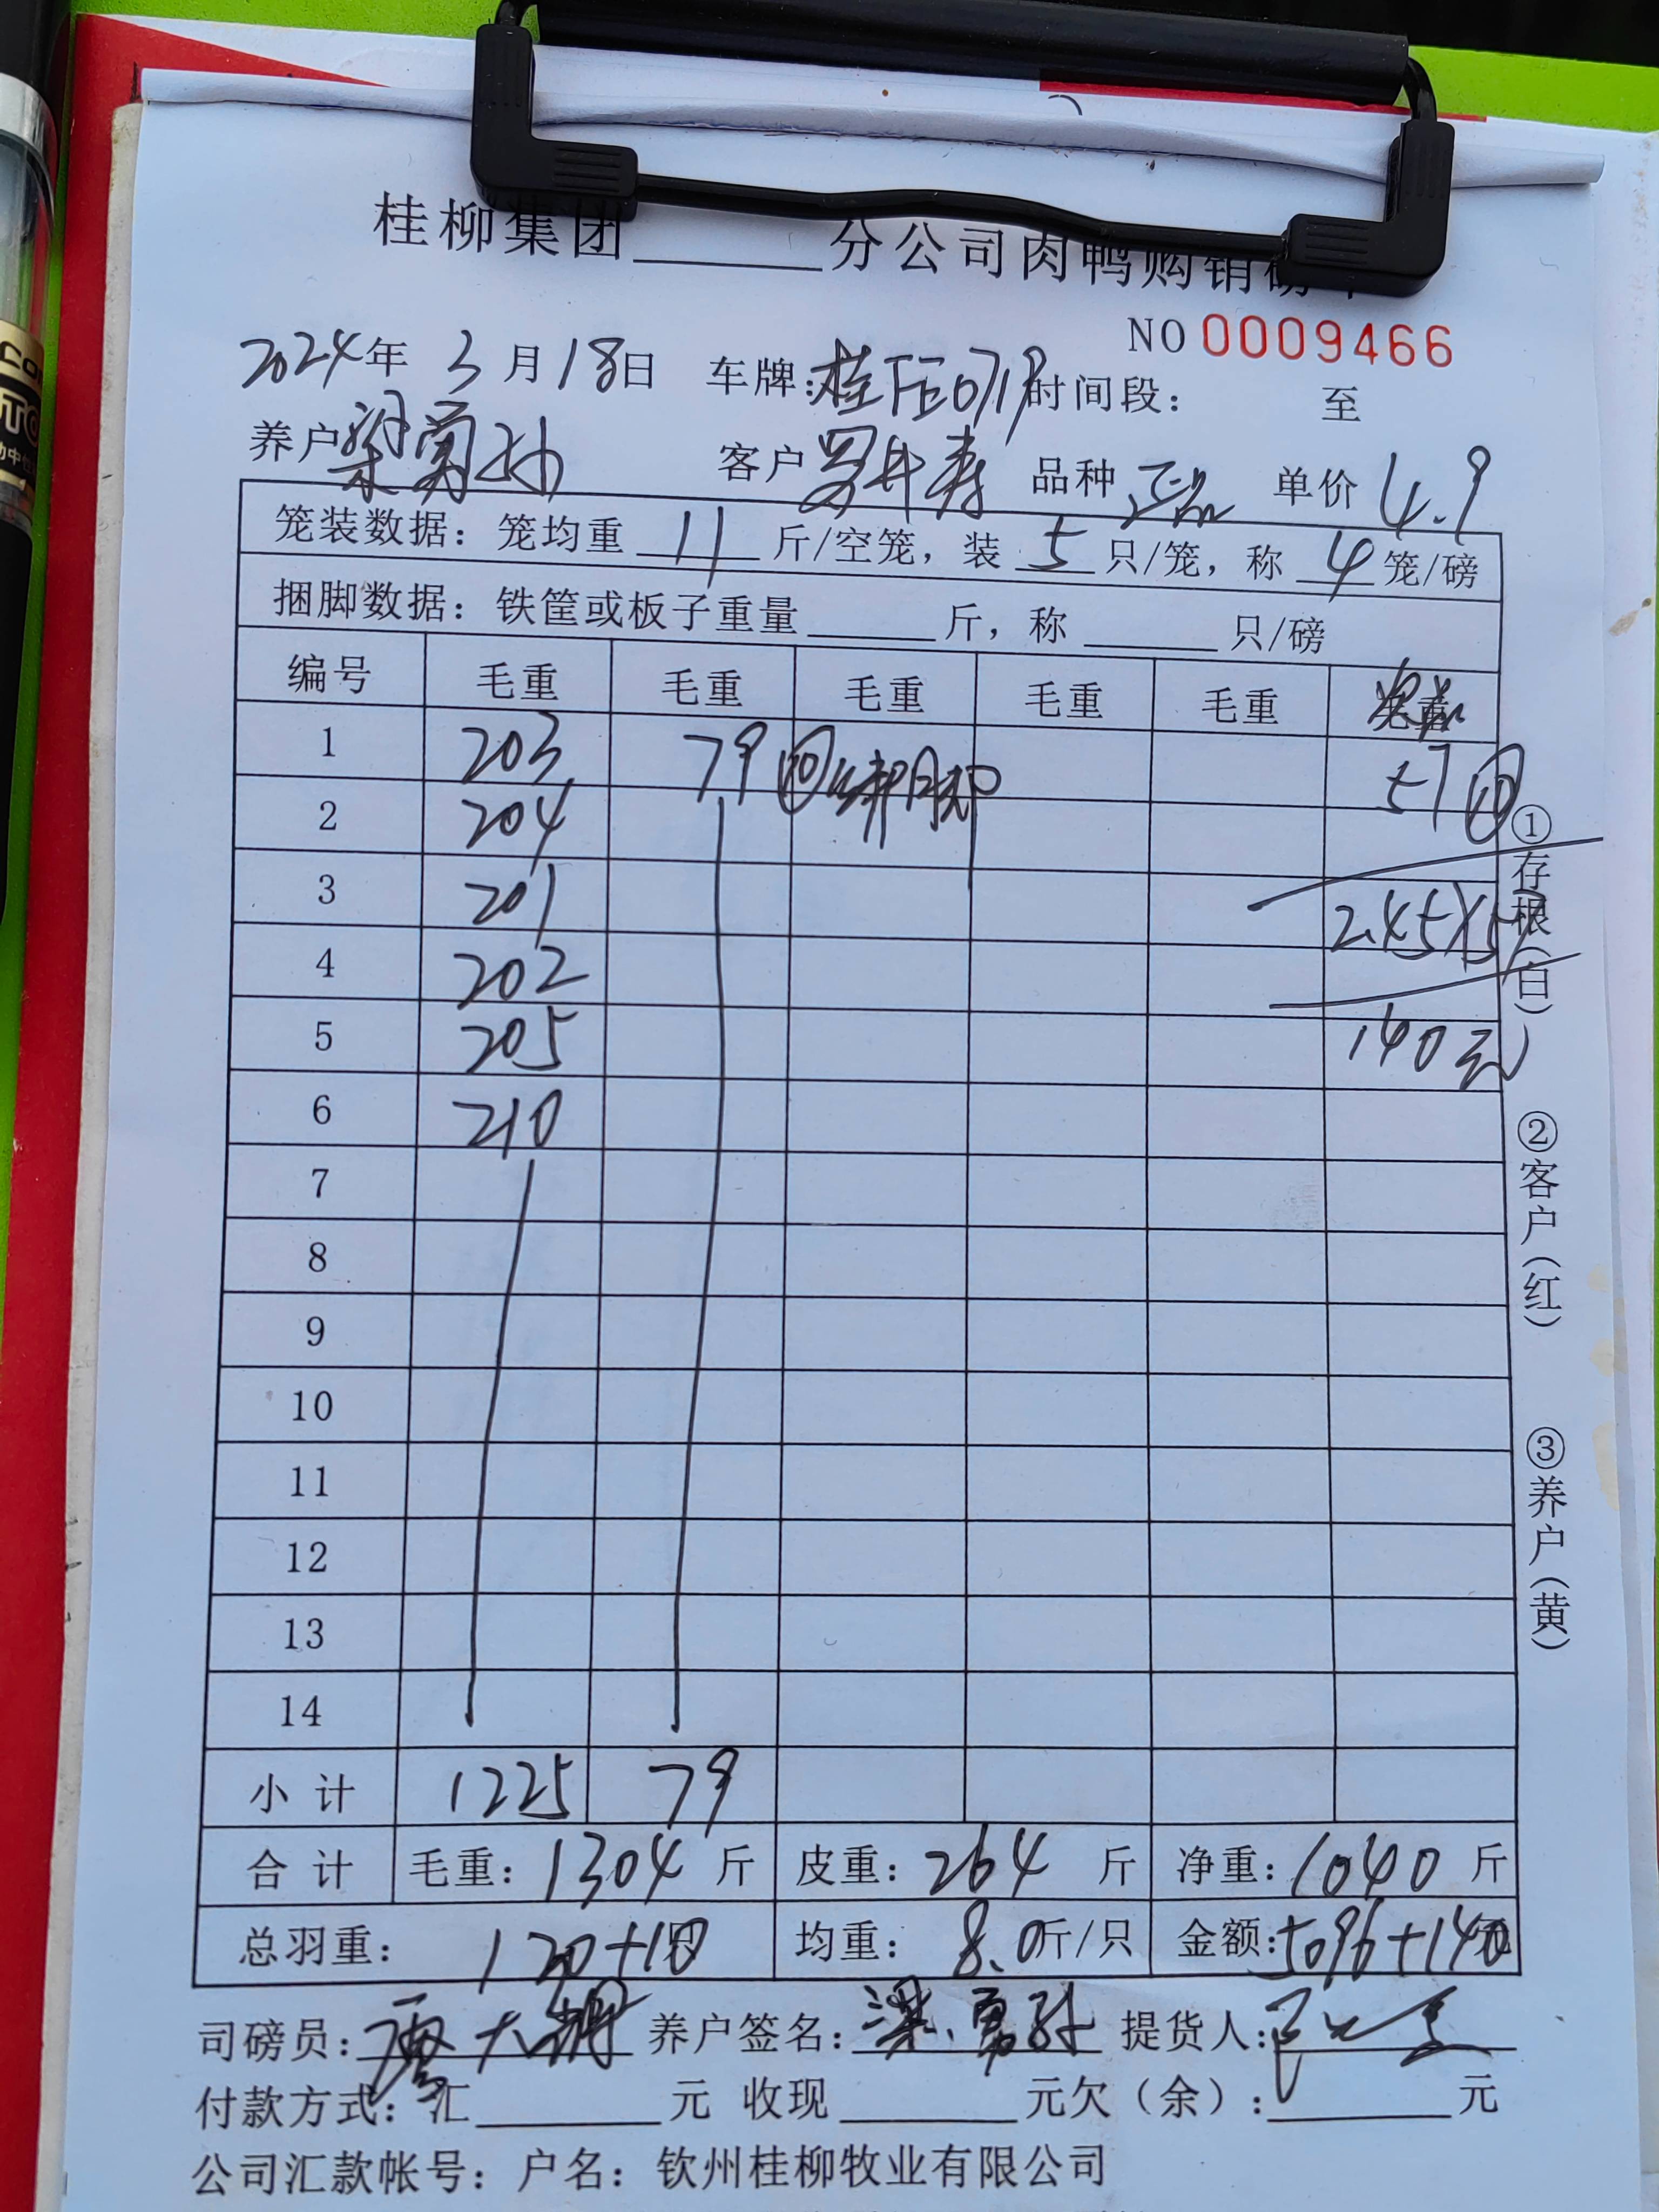 桂柳集团______分公司肉鸭购销磅单
NO 0009466
2024年 3月18日 车牌:桂FE0719 时间段: 至
养户 梁勇孙 客户 品种 正品 单价 4.9
笼装数据: 笼均重 11 斤/空笼, 装 5 只/笼, 称 4 笼/磅
捆脚数据: 铁筐或板子重量______斤, 称______只/磅
编号 毛重 毛重 毛重 毛重 毛重
1 203 79 ⑩ 绑脚 57 ⑩
2 204
3 201 2.45×57
4 202
5 205 140元
6 210
7
8
9
10
11
12
13
14
小计 1225 79
合计 毛重: 1304 斤 皮重: 264 斤 净重: 1040 斤
总羽重: 120+10 均重: 8.0斤/只 金额: 5096+140
司磅员: 养户签名: 梁勇孙 提货人:
付款方式: 汇______元 收现______元欠（余）:______元
公司汇款帐号: 户名: 钦州桂柳牧业有限公司
①存根(白)
②客户(红)
③养户(黄)
CO